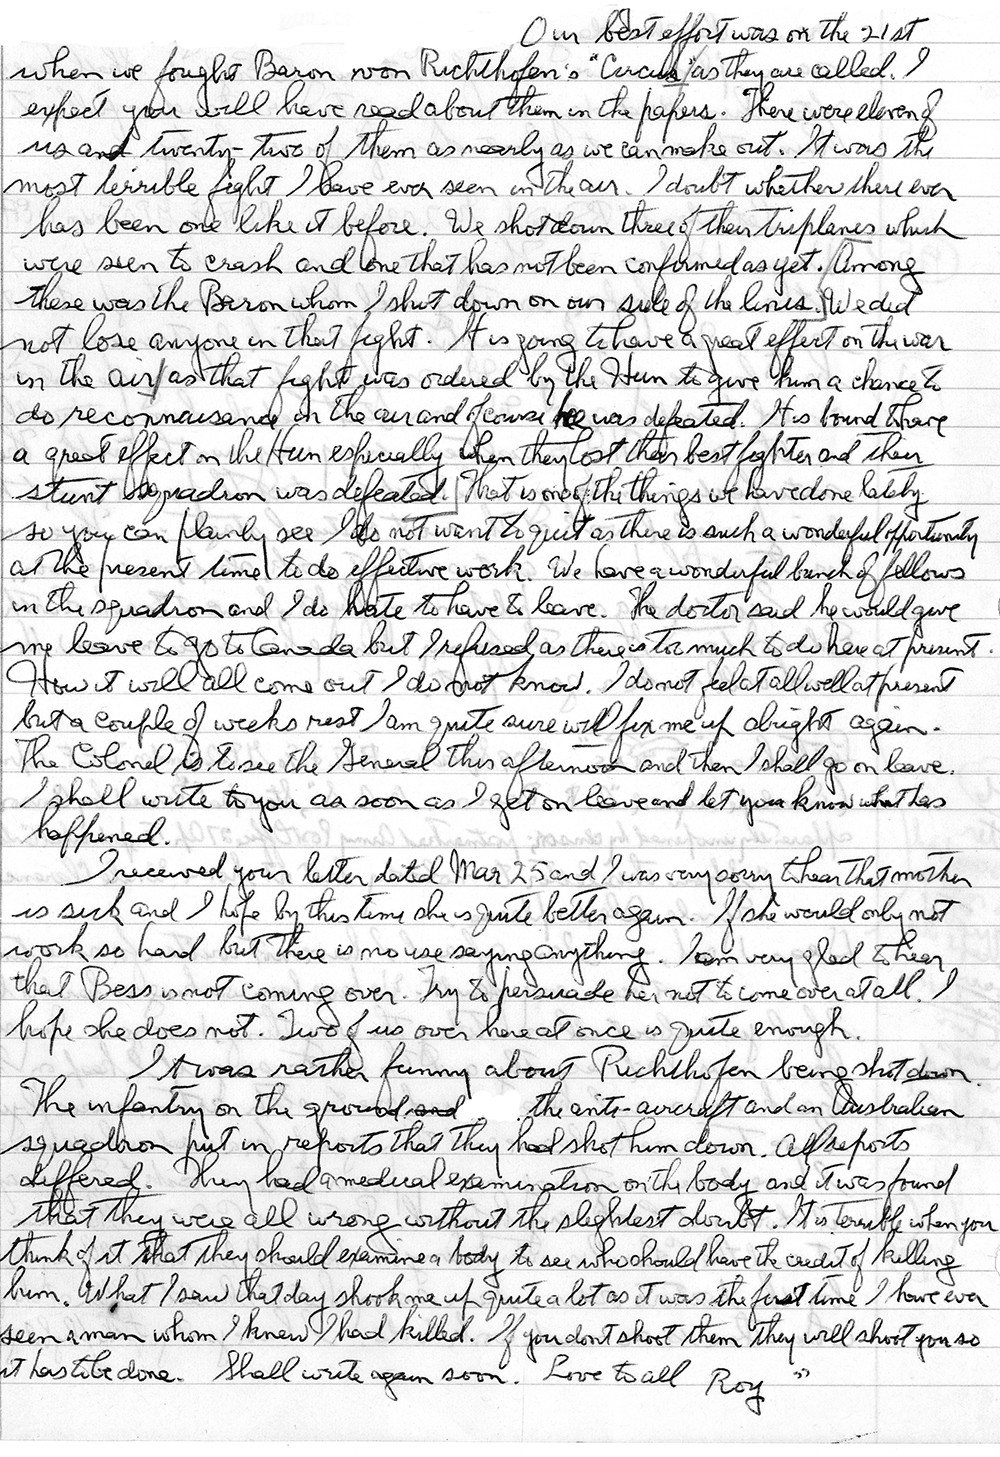 Our best effort was on the 21st
when we fought Baron von Richthofen's "Circus" as they are called. I
expect you will have read about them in the papers. There were eleven of
us and twenty-two of them as nearly as we can make out. It was the
most terrible fight I have ever seen in the air. I doubt whether there ever
has been one like it before. We shot down three of their triplanes which
were seen to crash and one that has not been confirmed as yet. Among
these was the Baron whom I shot down on our side of the lines. We did
not lose anyone in that fight. It is going to have a great effect on the war
in the air as that fight was ordered by the Hun to give him a chance to
do reconnaisance in the air and of course he was defeated. It is bound to have
a great effect on the Hun especially when they lost their best fighter and their
stunt squadron was defeated. That is one of the things we have done lately
so you can plainly see I do not want to quit as there is such a wonderful opportunity
at the present time to do effective work. We have a wonderful bunch of fellows
in the squadron and I do hate to have to leave. The doctor said he would give
me leave to go to Canada but I refused as there is too much to do here at present.
How it will all come out I do not know. I do not feel at all well at present
but a couple of weeks rest I am quite sure will fix me up alright again.
The Colonel is to see the General this afternoon and then I shall go on leave.
I shall write to you as soon as I get on leave and let you know what has
happened.
I received your letter dated Mar 25 and I was very sorry to hear that mother
is sick and I hope by this time she is quite better again. If she would only not
work so hard but there is no use saying anything. I am very glad to hear
that Bess is not coming over. Try to persuade her not to come over at all. I
hope she does not. Two of us over here at once is quite enough.
It was rather funny about Richthofen being shot down.
The infantry on the ground and the anti-aircraft and an Australian
squadron put in reports that they had shot him down. All reports
differed. They had a medical examination on the body and it was found
that they were all wrong without the slightest doubt. It is terrible when you
think of it that they should examine a body to see who should have the credit of killing
him. What I saw that day shook me up quite a lot as it was the first time I have ever
seen a man whom I knew I had killed. If you dont shoot them they will shoot you so
it has to be done. Shall write again soon. Love to all Roy "